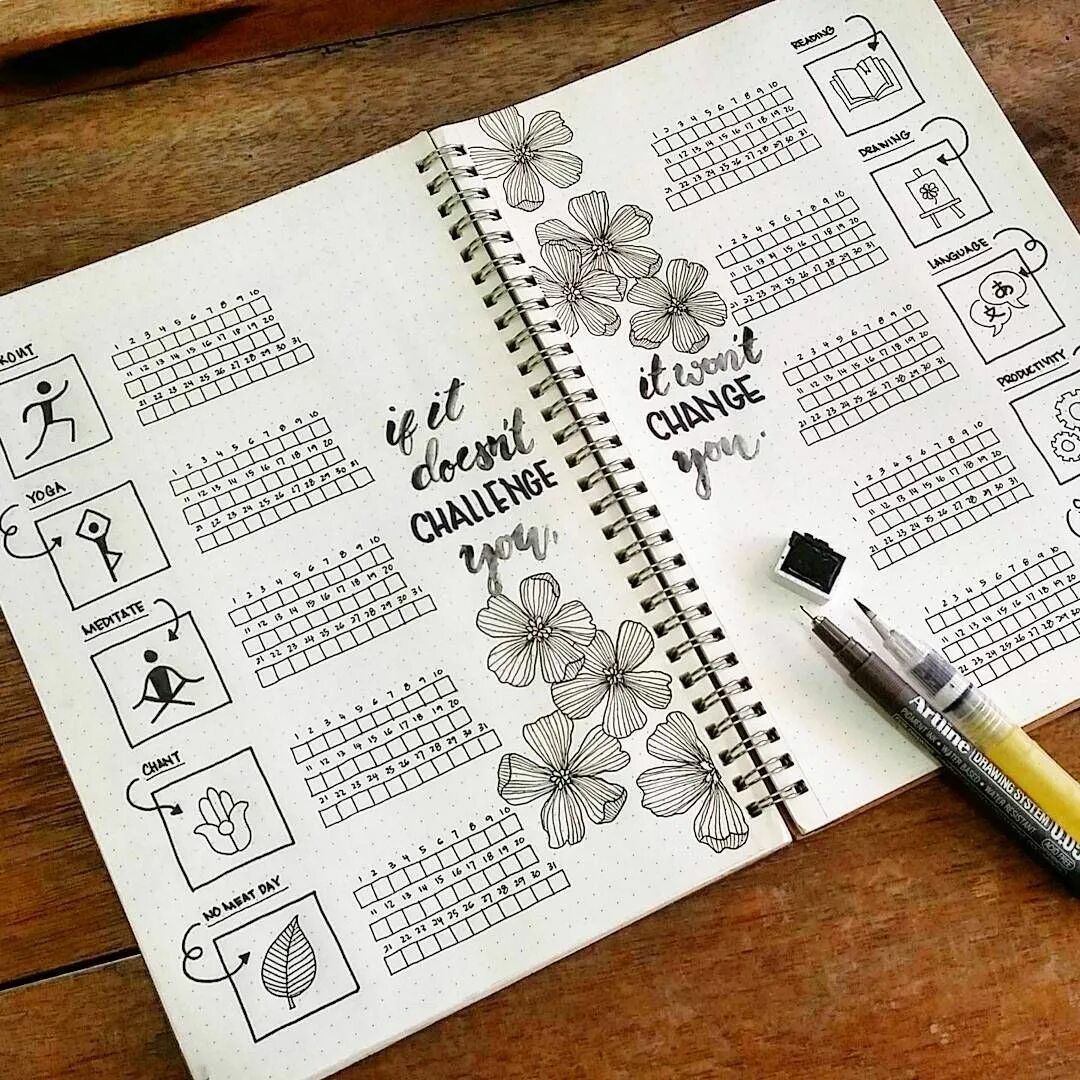 KOUT
1 2 3 4 5 6 7 8 9 10
11 12 13 14 15 16 17 18 19 20
21 22 23 24 25 26 27 28 29 30 31
YOGA
1 2 3 4 5 6 7 8 9 10
11 12 13 14 15 16 17 18 19 20
21 22 23 24 25 26 27 28 29 30 31
MEDITATE
1 2 3 4 5 6 7 8 9 10
11 12 13 14 15 16 17 18 19 20
21 22 23 24 25 26 27 28 29 30 31
CHANT
1 2 3 4 5 6 7 8 9 10
11 12 13 14 15 16 17 18 19 20
21 22 23 24 25 26 27 28 29 30 31
NO MEAT DAY
1 2 3 4 5 6 7 8 9 10
11 12 13 14 15 16 17 18 19 20
21 22 23 24 25 26 27 28 29 30 31
if it
doesn't
CHALLENGE
you,
it won't
CHANGE
you.
READING
1 2 3 4 5 6 7 8 9 10
11 12 13 14 15 16 17 18 19 20
21 22 23 24 25 26 27 28 29 30 31
DRAWING
1 2 3 4 5 6 7 8 9 10
11 12 13 14 15 16 17 18 19 20
21 22 23 24 25 26 27 28 29 30 31
LANGUAGE
あ
文
1 2 3 4 5 6 7 8 9 10
11 12 13 14 15 16 17 18 19 20
21 22 23 24 25 26 27 28 29 30 31
PRODUCTIVITY
1 2 3 4 5 6 7 8 9 10
11 12 13 14 15 16 17 18 19 20
21 22 23 24 25 26 27 28 29 30 31
1 2 3 4 5 6 7 8 9 10
11 12 13 14 15 16 17 18 19 20
21 22 23 24 25 26 27 28 29 30
Artline DRAWING SYSTEM 0.05
PIGMENT INK • WATER BASED • WATER RESISTANT ACID FREE